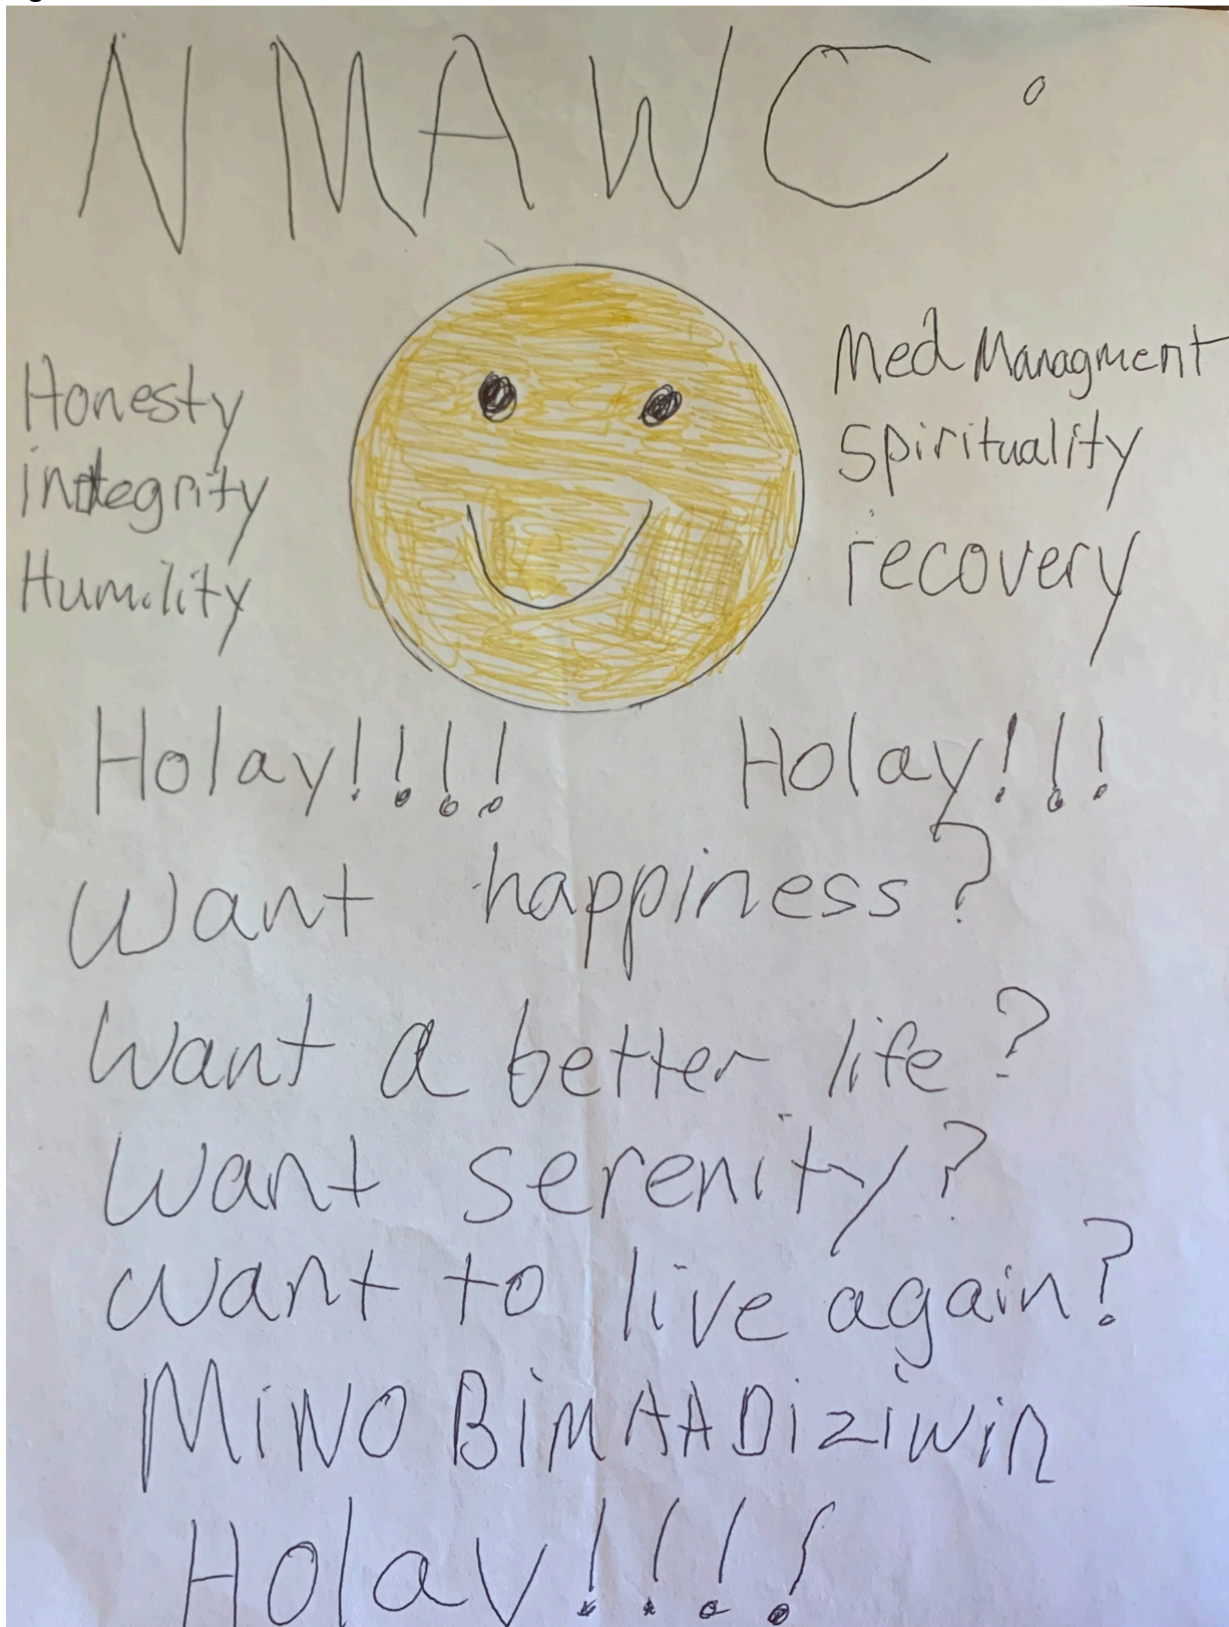 NMAWC
Honesty
integrity
Humility
Med Managment
Spirituality
recovery
Holay!!!! Holay!!!
Want happiness?
Want a better life?
Want serenity?
Want to live again?
MiNO BiMAADiziwin
Holay!!!!